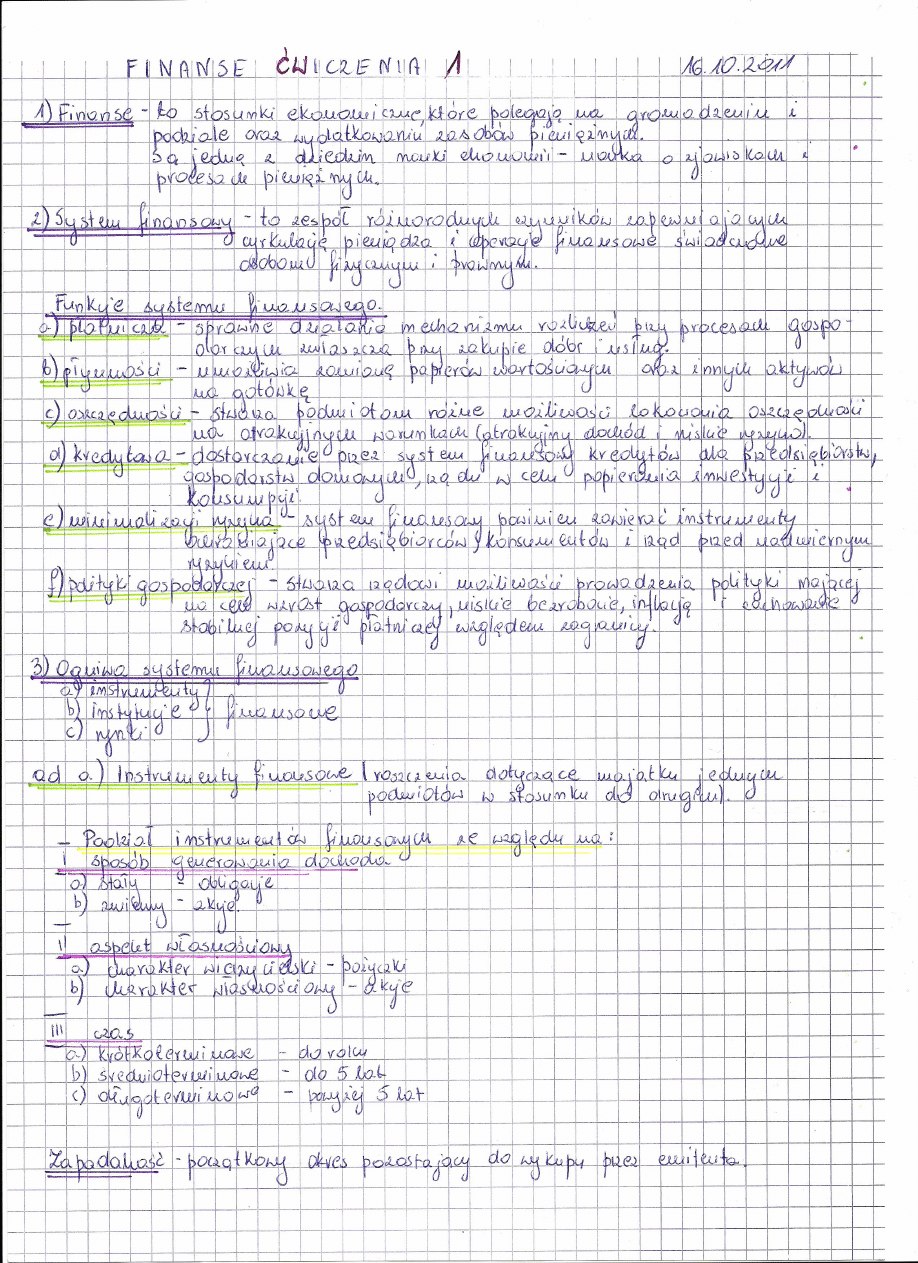 FINANSE ĆWICZENIA 1 16.10.2011
1) Finanse - to stosunki ekonomiczne, które polegają na gromadzeniu i
podziale oraz wydatkowaniu zasobów pieniężnych.
Są jedną z dziedzin nauki ekonomii - nauka o zjawiskach i
procesach pieniężnych.
2) System finansowy - to zespół różnorodnych czynników zapewniających
cyrkulację pieniądza i operacje finansowe świadczone
osobom fizycznym i prawnym.
Funkcje systemu finansowego.
a) płatnicza - sprawne działania mechanizmu rozliczeń przy procesach gospo-
darczych zwłaszcza przy zakupie dóbr i usług.
b) płynności - umożliwia zamianę papierów wartościowych oraz innych aktywów
na gotówkę
c) oszczędności - stwarza podmiotom różne możliwości lokowania oszczędności
na atrakcyjnych warunkach (atrakcyjny dochód i niskie ryzyko).
d) kredytowa - dostarczanie przez system finansowy kredytów dla przedsiębiorstw,
gospodarstw domowych, rządu w celu popierania inwestycji i
konsumpcji
e) minimalizacji ryzyka - system finansowy powinien zawierać instrumenty
przedsiębiorców, konsumentów i rząd przed nadmiernym
ryzykiem
f) polityki gospodarczej - stwarza rządowi możliwości prowadzenia polityki mającej
na celu wzrost gospodarczy, niskie bezrobocie, inflację i
stabilnej pozycji płatniczej względem zagranicy.
3) Ogniwa systemu finansowego
a) instrumenty
b) instytucje } finansowe
c) rynki
ad a.) Instrumenty finansowe (roszczenia dotyczące majątku jednych
podmiotów w stosunku do drugich).
- Podział instrumentów finansowych ze względu na:
I sposób generowania dochodu
a) stały - obligacje
b) zmienny - akcje.
II aspekt własnościowy
a) charakter wierzycielski - pożyczki
b) charakter własnościowy - akcje
III czas
a) krótkoterminowe - do roku
b) średnioterminowe - do 5 lat
c) długoterminowe - powyżej 5 lat
Zapadalność - początkowy okres pozostający do wykupu przez emitenta.